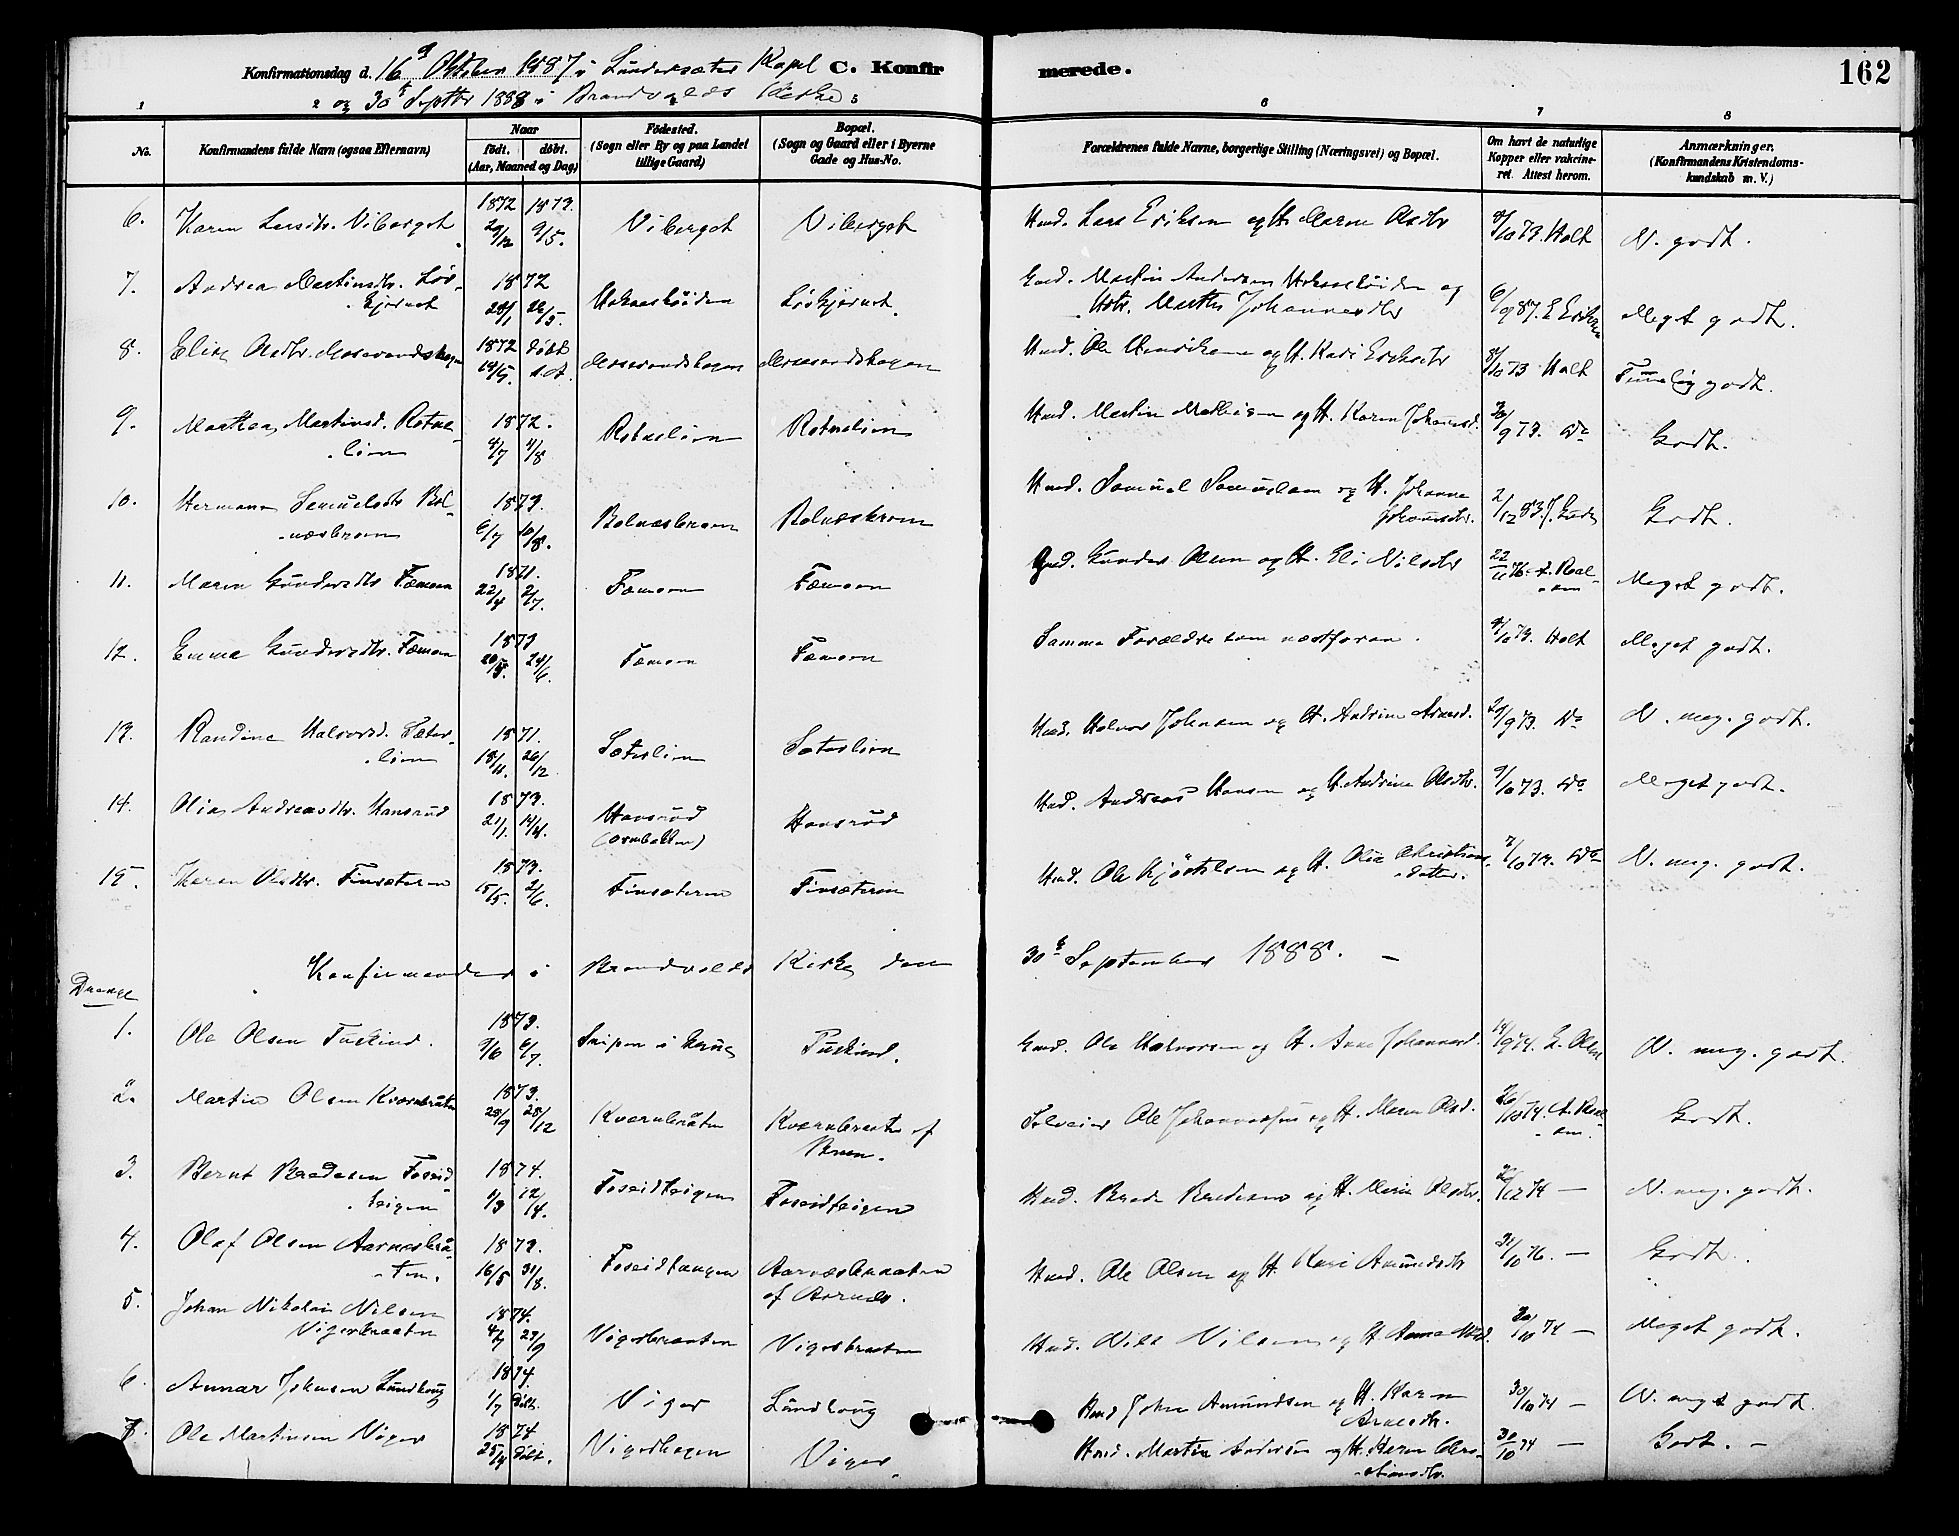 Konfirmationsdag d. 16d Oktober 1887 i Lundersæter Kapel C. Konfirmerede. 162
og 30t Septbr 1888 i Brandvolds Kirke
1 2 5 6 7 8
No. Konfirmandens fulde Navn (ogsaa Efternavn) Naar født. døbt. (Aar, Maaned og Dag) Fødested. (Sogn eller By og paa Landet tillige Gaard) Bopæl. (Sogn og Gaard eller i Byerne Gade og Hus-No. Forældrenes fulde Navne, borgerlige Stilling (Næringsvei) og Bopæl. Om havt de naturlige Kopper eller vakcineret. Attest herom. Anmærkninger. (Konfirmandens Kristendomskundskab m. V.)
6. Karen Larsdtr. Viberget 1872 29/12 1873. 9/5. Viberget Viberget Hmd. Lars Eriksen og H. Maren Olsdtr 8/10 73. Holt N. godt.
7. Andrea Martinsdtr. Løv- 1872 28/1 26/5. Løvkjernet. Gmd. Martin Andersen og
kjernet Hstr. Marthe Johannesdtr 6/9 87. E Eriksen Meget godt.
8. Elise Olsdtr. Mosevandskogen 1872 19/5. døbt s.A. Mosevandskogen Mosevandskogen Hmd. Ole Henriksen og H. Kari Eriksdtr 8/10 73 Holt Temmelig godt.
9. Marthea Martinsd. Rotne- 1872. 4/7 4/8 Rotnelien Rotnelien Hmd. Martin Mathisen og H. Karen Johannesd. 30/9 73. Do Godt.
lien
10. Hermana Samuelsdtr Bol- 1873. 6/7 10/8. Bolnæskroen Bolnæskroen Hmd. Samuel Samuelsen og H. Johanne
næskroen Johannesdtr. 2/12 83. Godt.
11. Maren Gundersdtr Fæmoen 1871. 22/4 2/7. Fæmoen Fæmoen Gmd. Gunder Olsen og H. Eli Nilsdtr 22/11 76. Meget godt.
12. Emma Gundersdtr. Fæmoen 1873 20/5. 24/6. Fæmoen Fæmoen Samme Forældre som næstforan. 8/10 73. Holt Meget godt.
13. Randine Halvorsd. Sæter- 1871. 18/11. 26/12 Sæterlien Sæterlien Hmd. Halvor Johnsen og H. Andrine Arnesd. 29/9 73. Do N. meg. godt.
lien
14. Olia Andreasdtr. Hansrud 1873. 21/1. 14/4. Hansrød Hansrød Hmd. Andreas Hansen og H. Andrine Olsdtr. 9/10 73. Do Meget godt.
15. Karen Olsdtr. Finsæteren 1873. 15/5. 2/6. Finsæteren Finsæteren Hmd. Ole Kjøstelsen og H. Olia Christians-
datter. 7/10 74. Do N. meg. godt.
Konfirmander i Brandvolds Kirke den 30t September 1888. -
Drenge
1. Ole Olsen Tuskind. 1873. 9/6 6/7. Tuskind. Gmd. Ole Halvorsen og H. Anne Johannesd. 14/9 74. L. Olsen N. meg. godt.
2. Martin Olsen Kværnbråten 1873. 28/9 28/12 Kværnbråten Kværnbraaten af
Selveier Ole Johannesen og H. Maren Olsd. 26/10 74. Godt.
3. Bernt Bredesen Foseid- 1874. 1/3 12/4. Foseidteigen Foseidteigen Hmd. Brede Bredesen og H. Marie Olsdtr. N. meg. godt.
teigen
4. Olaf Olsen Aarnesbrå- 1873. 16/5 31/8. Foseidtangen Aarnæsbraaten
ten. af Aarnes. Hmd. Ole Olsen og H. Kari Amundsdtr 31/10 76. - Godt.
5. Johan Nikolai Nilsen 1874. 4/7 27/9 Vigerbraaten Vigerbraaten
Vigerbraaten Hmd. Nils Nilsen og H. Anna 30/10 74 - Meget godt.
6. Annar Johnsen Lundhaug 1874. 1/7 døbt. Viger Lundhaug Hmd John Amundsen og H. Karen
Arnesdtr. 30/10 74 - N. meget godt.
7. Ole Martinsen Viger 1874 25/4 døbt. Vigerhagen Viger. Hmd. Martin Andersen og H. Karen Chris-
tiansdtr. 30/10 74 - Godt. -